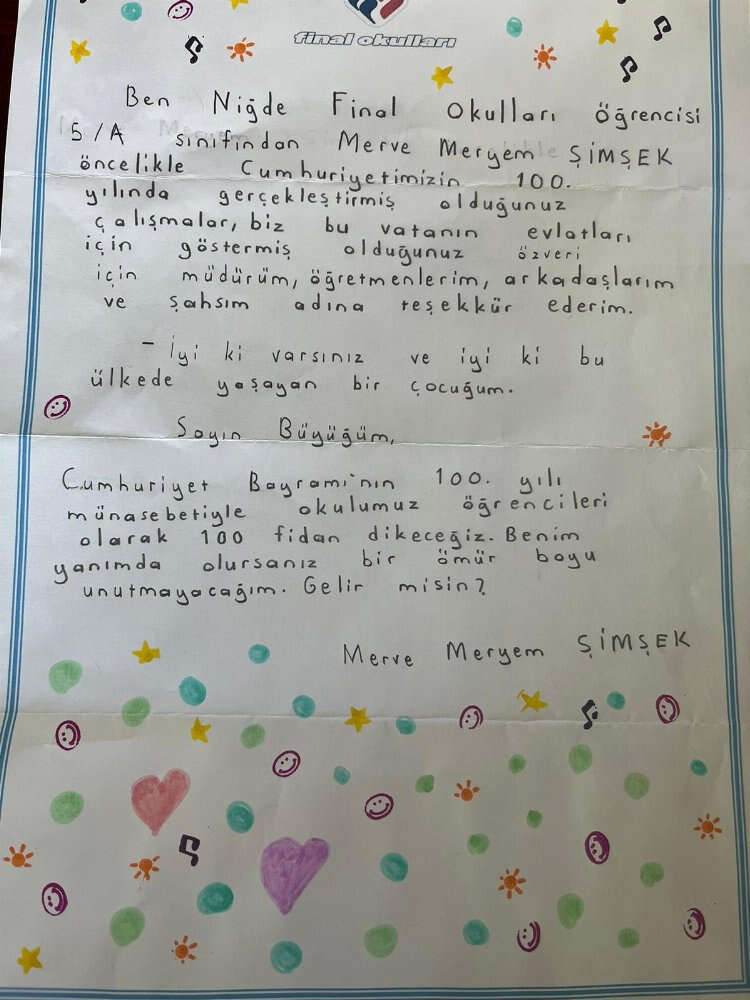 final okulları
Ben Niğde Final Okulları öğrencisi
5/A sınıfından Merve Meryem ŞİMŞEK
öncelikle Cumhuriyetimizin 100.
yılında gerçekleştirmiş olduğunuz
çalışmalar, biz bu vatanın evlatları
için göstermiş olduğunuz özveri
için müdürüm, öğretmenlerim, arkadaşlarım
ve şahsım adına teşekkür ederim.
- İyi ki varsınız ve iyi ki bu
ülkede yaşayan bir çocuğum.
Sayın Büyüğüm,
Cumhuriyet Bayramı'nın 100. yılı
münasebetiyle okulumuz öğrencileri
olarak 100 fidan dikeceğiz. Benim
yanımda olursanız bir ömür boyu
unutmayacağım. Gelir misin?
Merve Meryem ŞİMŞEK